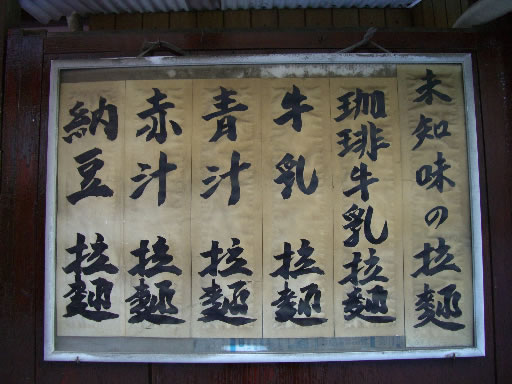 未知味の拉麺
珈琲牛乳拉麺
牛乳拉麺
青汁拉麺
赤汁拉麺
納豆拉麺